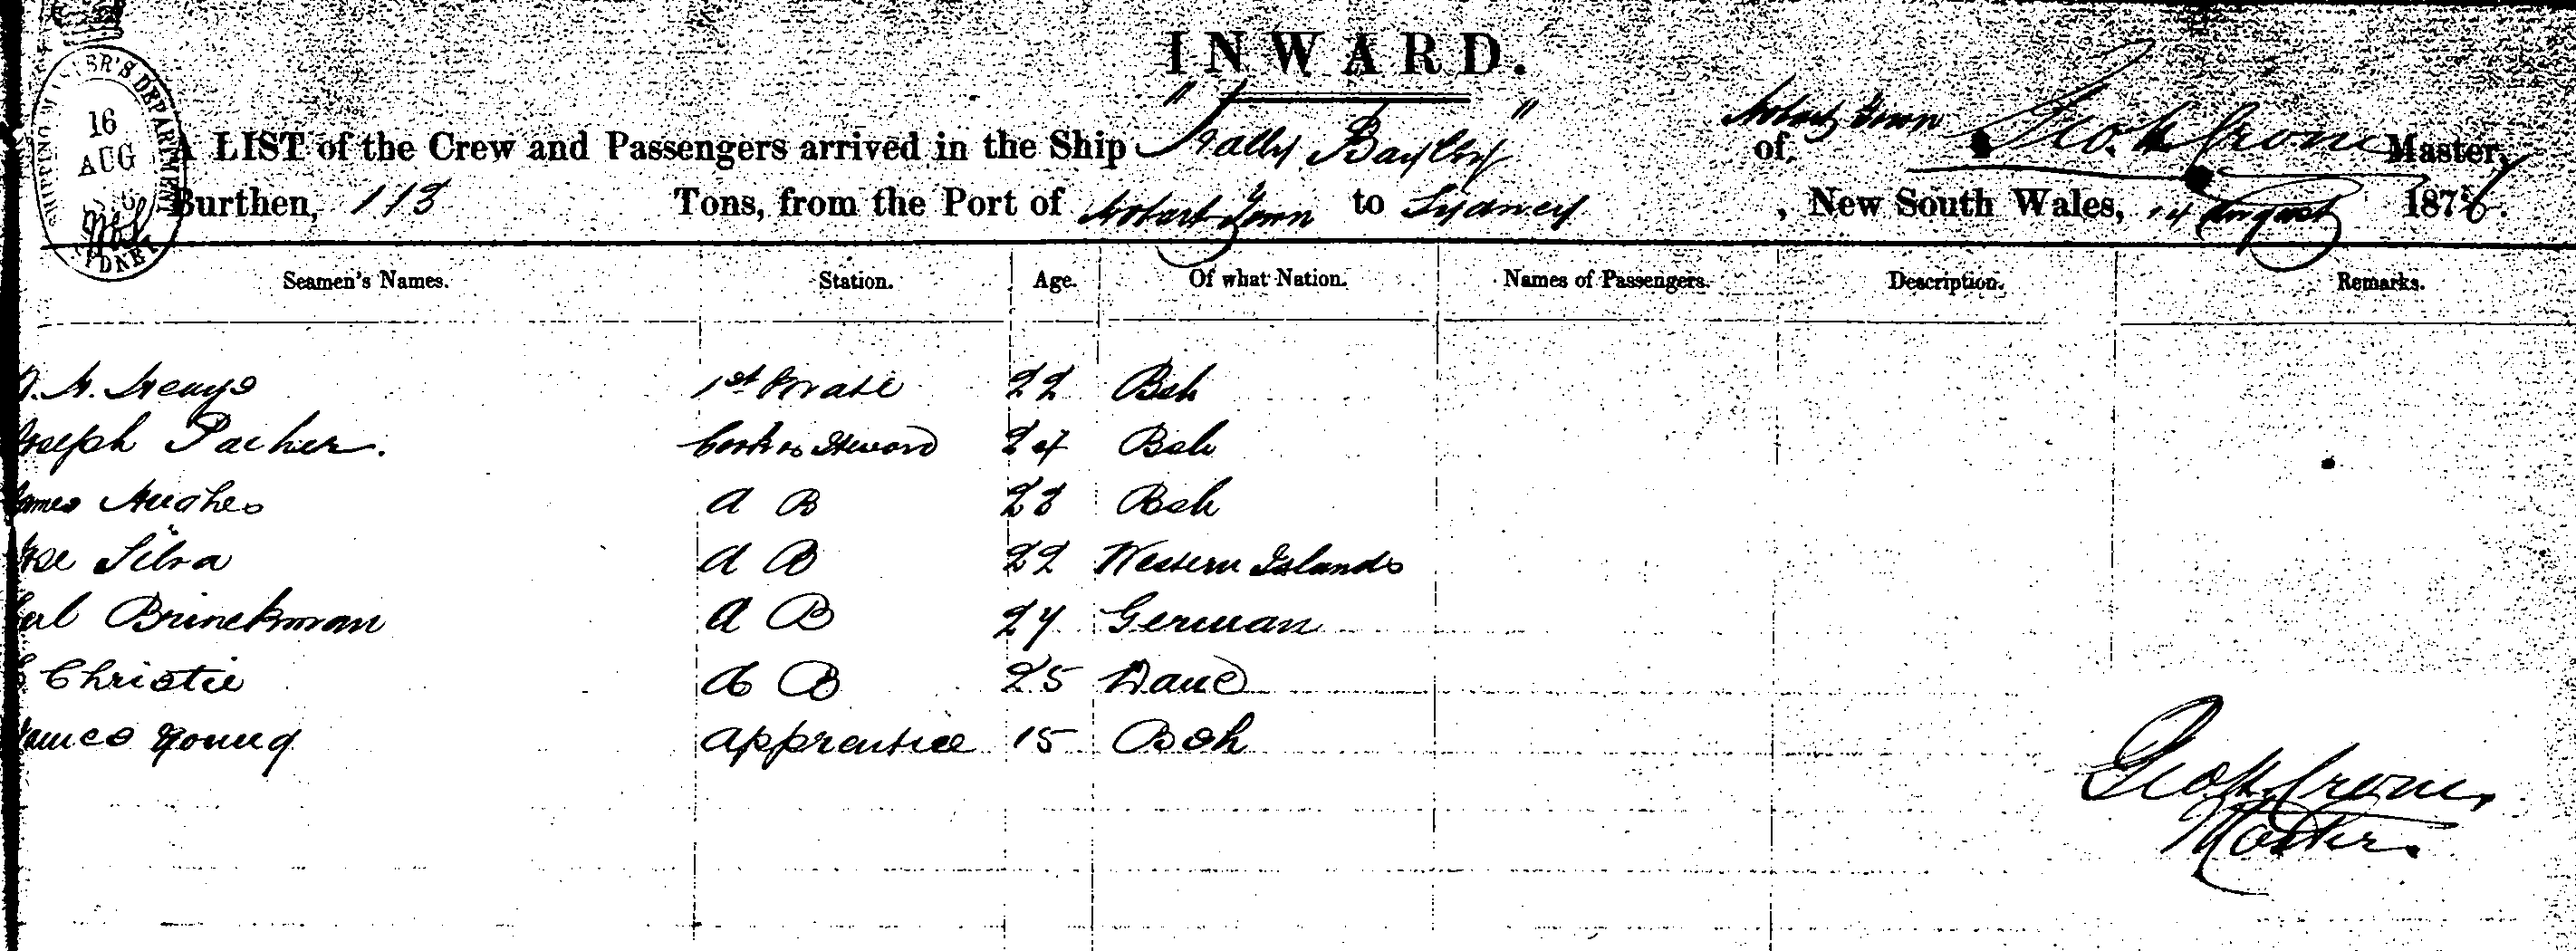 INWARD.
A LIST of the Crew and Passengers arrived in the Ship "Wally Bayley" of Hobart Town Geo. H. Crone Master,
Burthen, 113 Tons, from the Port of Hobart Town to Sydney, New South Wales, 14 August 1876.
SHIPPING MASTER'S DEPARTMENT
16
AUG
SYDNEY
Seamen's Names. Station. Age. Of what Nation. Names of Passengers. Description. Remarks.
1st Mate 22 Bsh
Joseph Packer. Cook & Steward 24 Bsh
James Hughes A B 23 Bsh
Jose Silva A B 22 Western Islands
Carl Brinckman A B 24 German
Christie A B 25 Dane
James Young Apprentice 15 Bsh
Geo H. Crone,
Master.